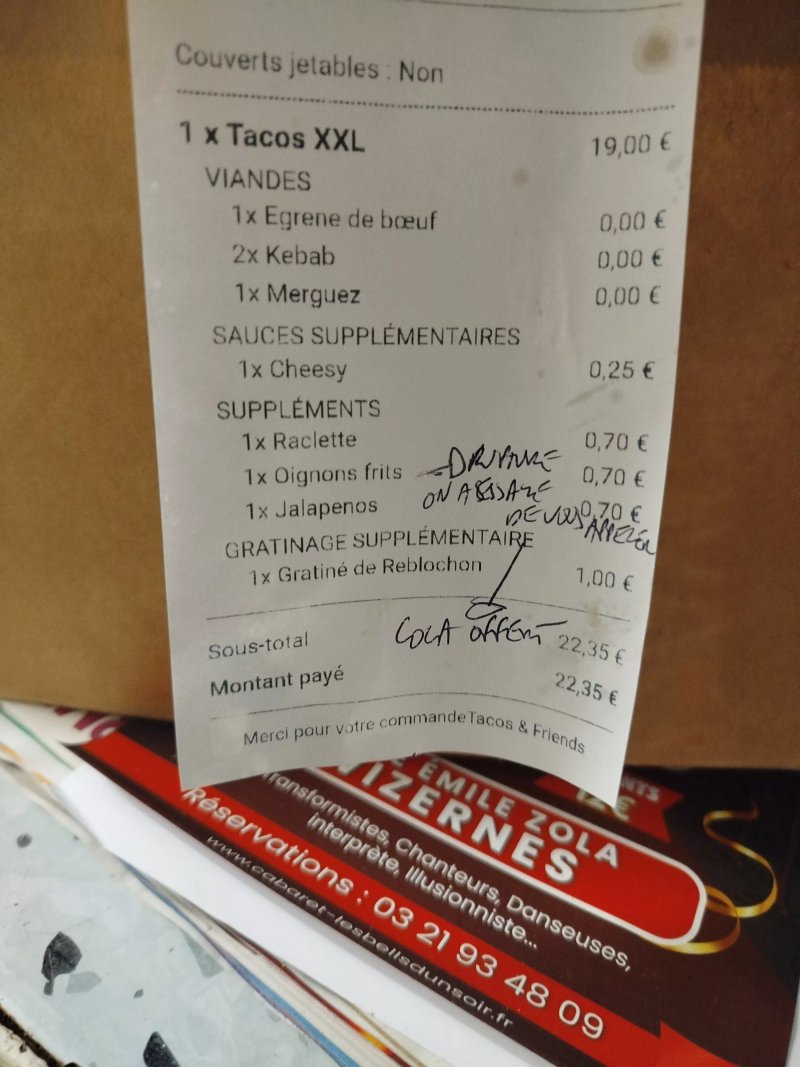 Couverts jetables : Non
1 x Tacos XXL 19,00 €
VIANDES
1x Egrene de bœuf 0,00 €
2x Kebab 0,00 €
1x Merguez 0,00 €
SAUCES SUPPLÉMENTAIRES
1x Cheesy 0,25 €
SUPPLÉMENTS
1x Raclette 0,70 €
1x Oignons frits 0,70 €
1x Jalapenos 0,70 €
ON A ESSAYE
DE VOUS APPELER
GRATINAGE SUPPLÉMENTAIRE
1x Gratiné de Reblochon 1,00 €
COCA OFFERT
Sous-total 22,35 €
Montant payé 22,35 €
Merci pour votre commandeTacos & Friends
EMILE ZOLA
WIZERNES
Transformistes, Chanteurs, Danseuses,
interprète, Illusionniste...
Réservations : 03 21 93 48 09
www.cabaret-lesbellsdunsoir.fr